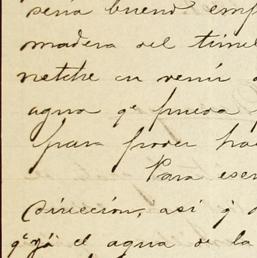 sería bueno emp
madera del túnel
netche en venir a
agua qe pueda
para poder hac
Para eser
direccion, así q d
qe ya el agua de la